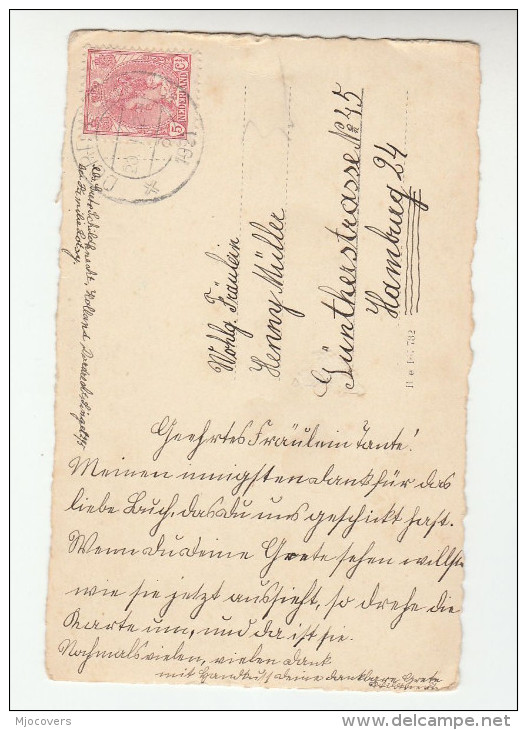 5 NEDERLAND 5 Ct
1921
Wohlg. Fräulein
Henny Müller
Güntherstrasse No 35
Hamburg 24
Geehrtes Fräulein Tante!
Meinen innigsten dank für das
liebe Buch, das du uns geschickt hast.
Wenn du deine Grete sehen willst
wie sie jetzt aussieht, so drehe die
Karte um, und da ist sie.
Nochmals vielen, vielen dank
mit Handkuss deine dankbare Grete
Mjocovers